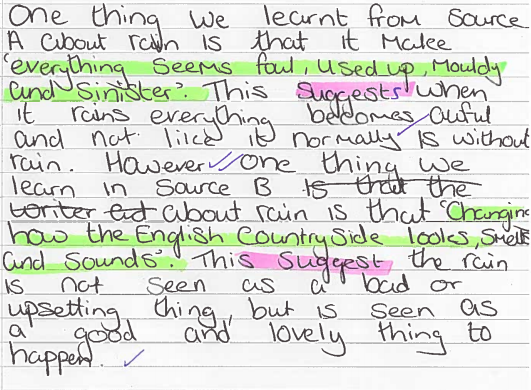 One thing we learnt from Source
A about rain is that it Make
'everything seems foul, used up, Mouldy
and Sinister'. This suggests when
it rains everything becomes awful
and not like it normally is without
rain. However one thing we
learn in Source B is that the
writer about rain is that 'Changing
how the English Countryside looks, Smells
and Sounds'. This suggest the rain
is not seen as a bad or
upsetting thing, but is seen as
a good and lovely thing to
happen.